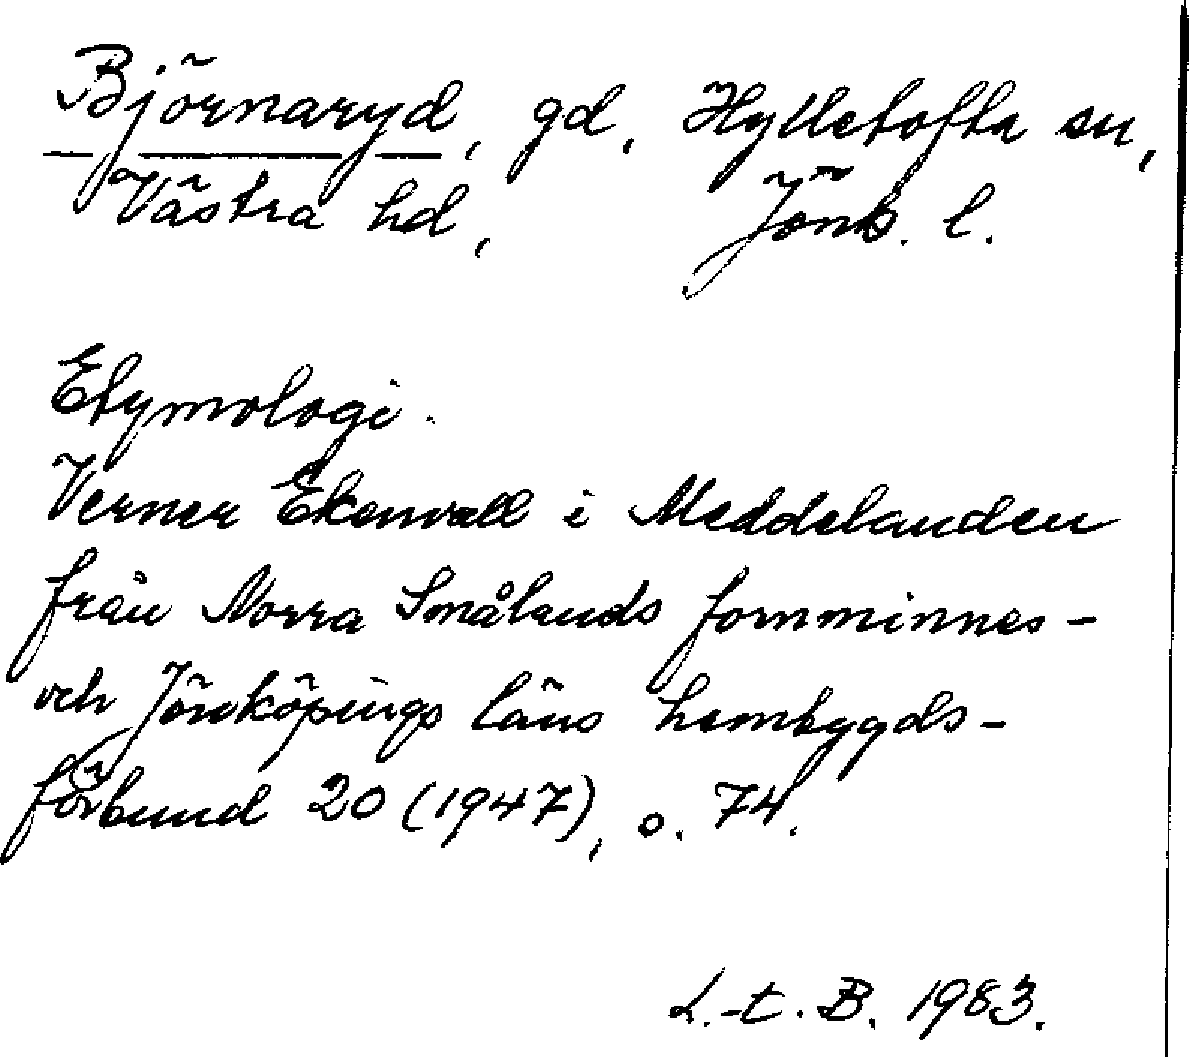 Björnaryd, gd, Hylletofta sn,
Västra hd, Jönk. l.
Etymologi.
Verner Ekenvall i Meddelanden
från Norra Smålands fornminnes-
och Jönköpings läns hembygds-
förbund 20 (1947), s. 74.
L.-t. B. 1983.